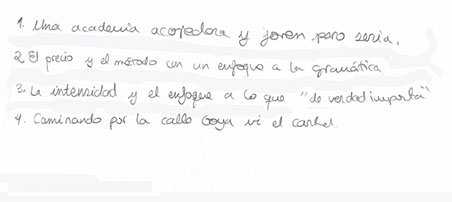 1. Una academia acogedora y joven pero seria.
2. El precio y el método con un enfoque a la gramática
3. La intensidad y el enfoque a lo que "de verdad importa"
4. Caminando por la calle Goya vi el cartel.